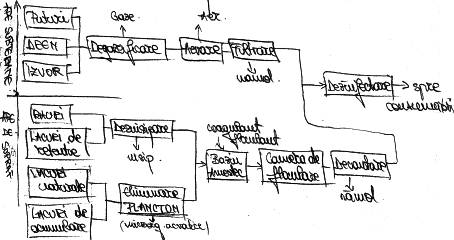 APE SUBTERANE
Puțuri
DREN
IZVOR
Gaze
Degazeificare
Aerare
Filtrare
nămol
Dezinfectare
spre
consumatori
APE DE SUPRAFAȚĂ
RÂURI
LACURI de
retenție
Deznisipare
nisip
coagulant
floculant
Bazin
Amestec
Camera de
floculare
Decantare
nămol
LACURI
naturale
LACURI de
acumulare
Eliminare
PLANCTON